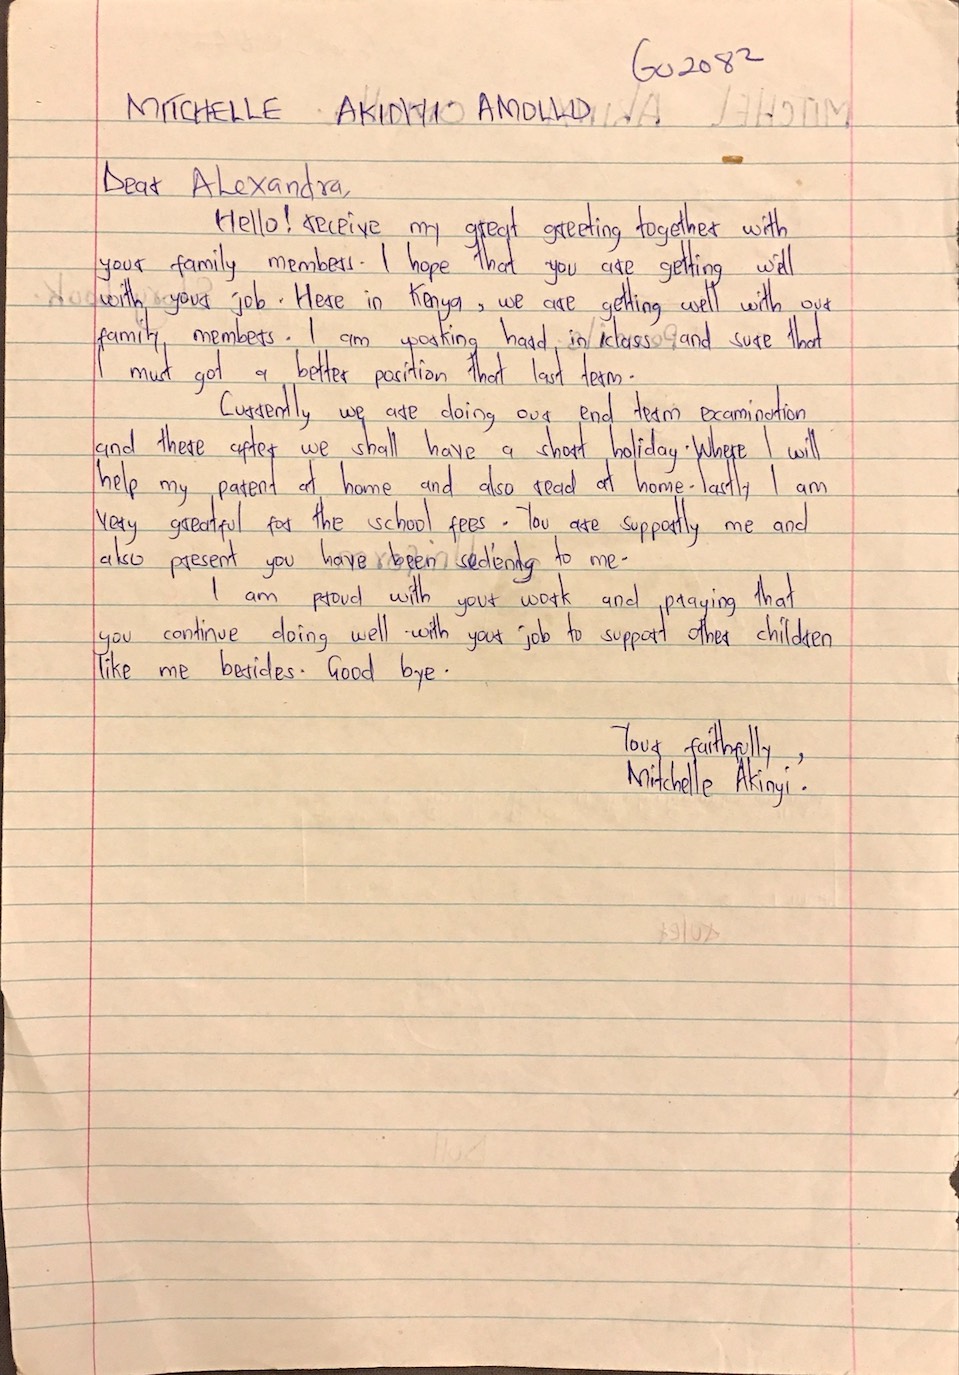 GU2082
MITCHELLE AKINYI AMOLLO
Dear Alexandra,
Hello! receive my great greeting together with
your family members. I hope that you are getting well
with your job. Here in Kenya, we are getting well with our
family members. I am working hard in class and sure that
I must got a better position that last term.
Currently we are doing our end term examination
and there after we shall have a short holiday. Where I will
help my parent at home and also read at home. lastly I am
very greatful for the school fees. You are supportly me and
also present you have been sediendg to me.
I am proud with your work and praying that
you continue doing well with your job to support other children
like me besides. Good bye.
Your faithfully,
Mitchelle Akinyi.
ruler